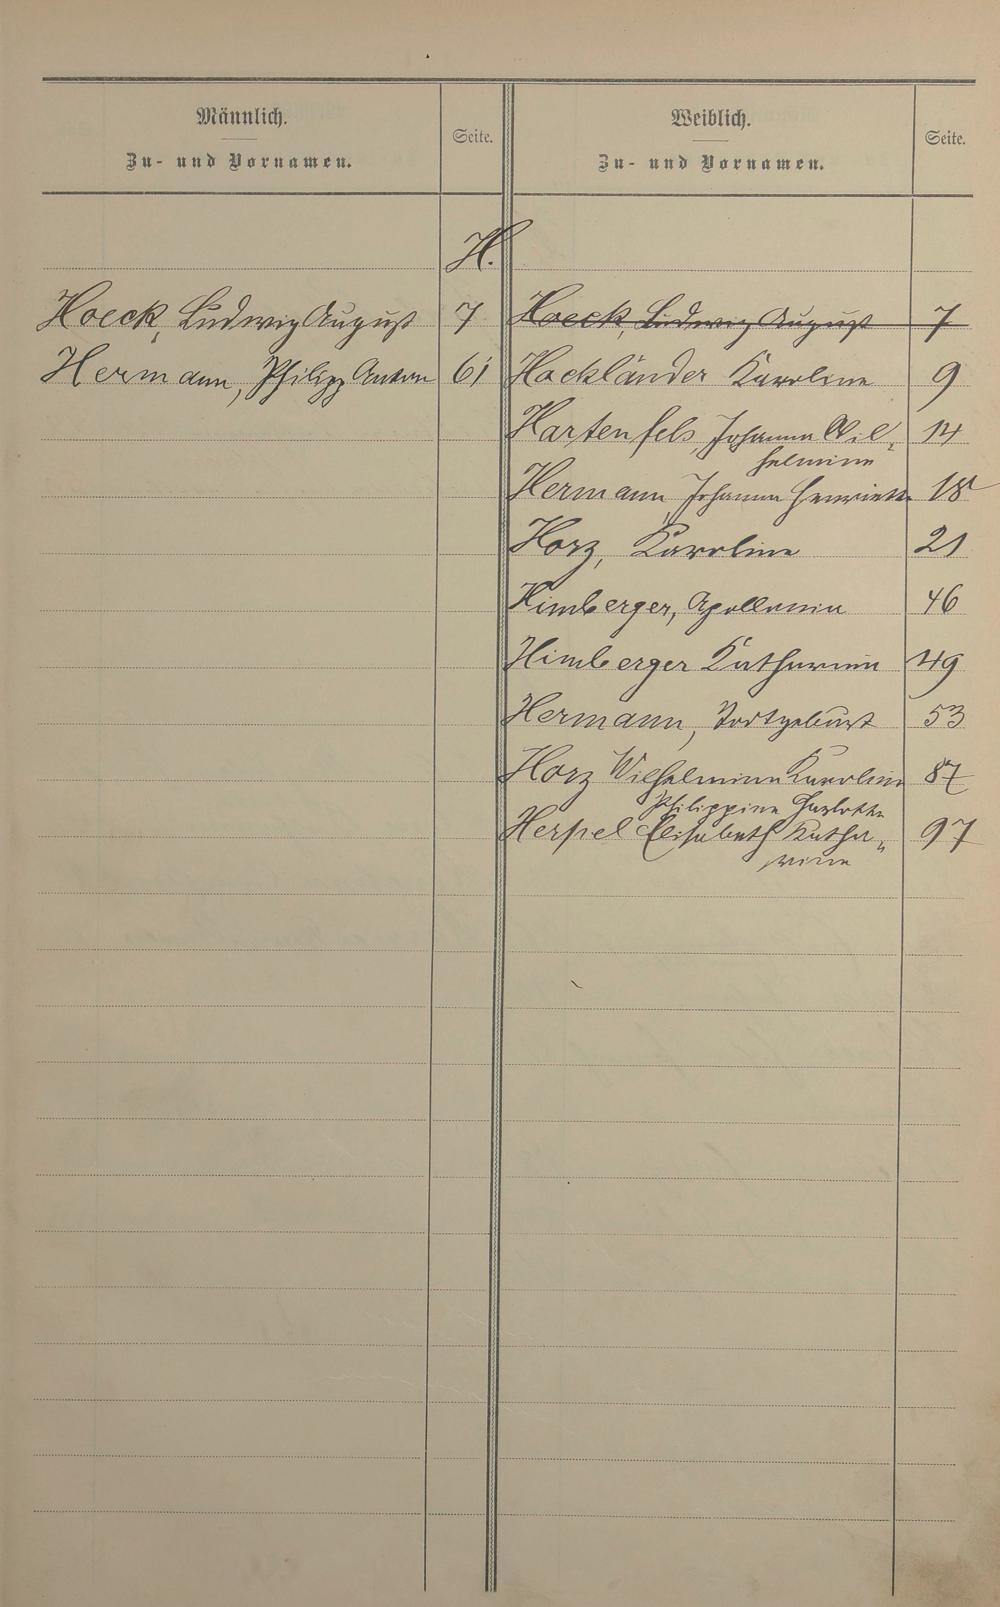 Männlich.
Zu- und Vornamen.
Seite.
Weiblich.
Zu- und Vornamen.
Seite.
H.
Hoeck, Ludwig August 7
Hermann, Philipp Anton 61
Hoeck, Ludwig August 7
Hackländer Karoline 9
Hartenfels, Johanna Wil-
helmine 14
Hermann, Johanna Henriette 18
Horz, Karoline 21
Himberger, Apollonia 46
Himberger Katharina 49
Hermann, Todtgeburt 53
Horz Wilhelmine Karoline 87
Philippine Charlotte
Herpel Elisabeth Katha-
rina 97